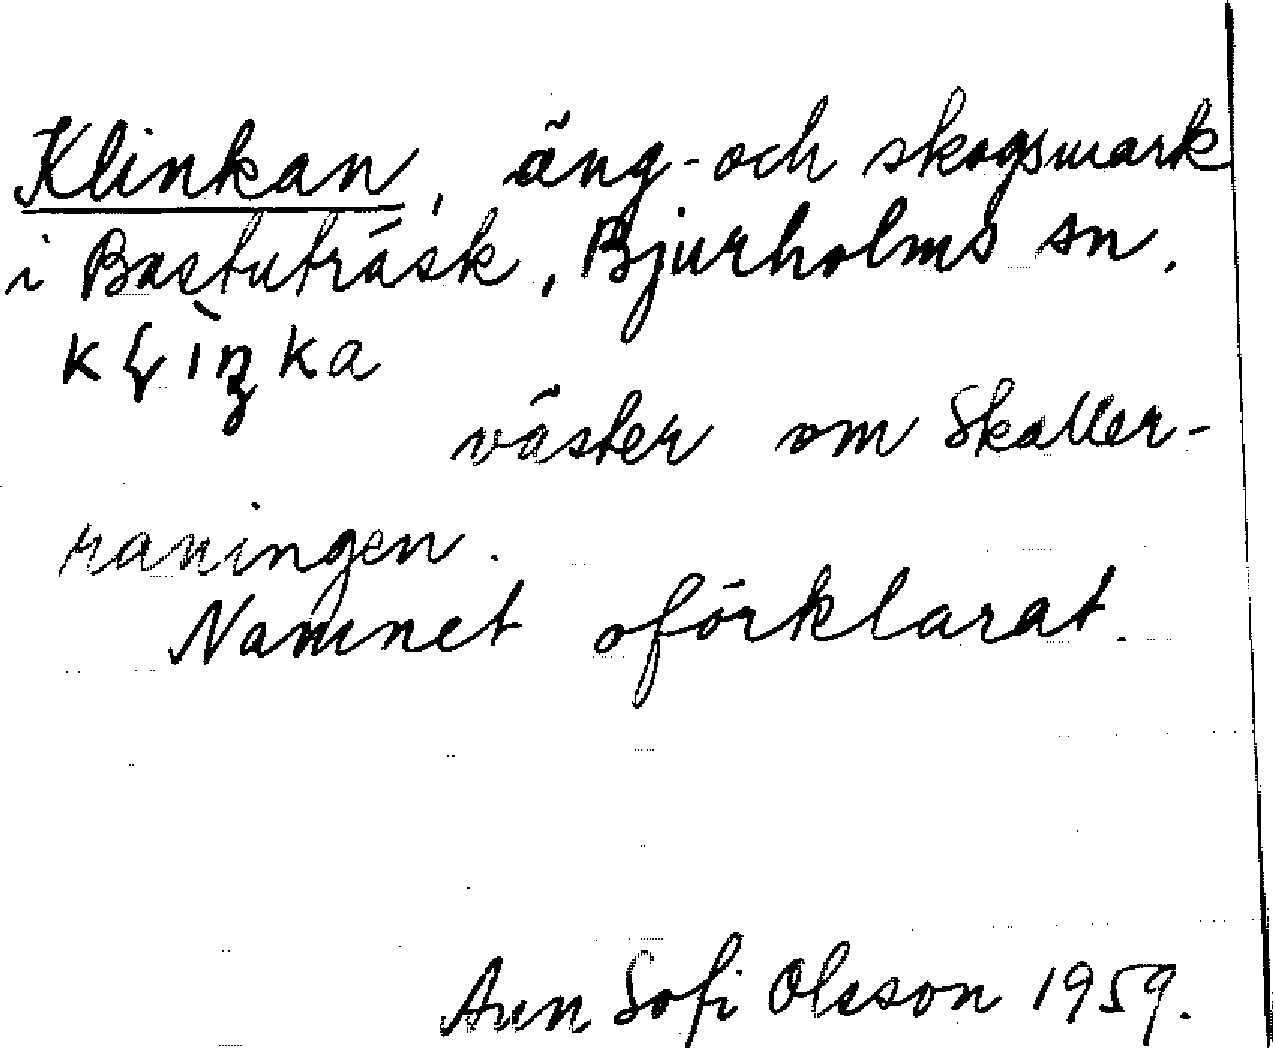 Klinkan, äng- och skogsmark
i Bastuträsk, Bjurholms sn.
väster om Skaller-
raningen.
Namnet oförklarat.
Ann Sofi Olsson 1959.